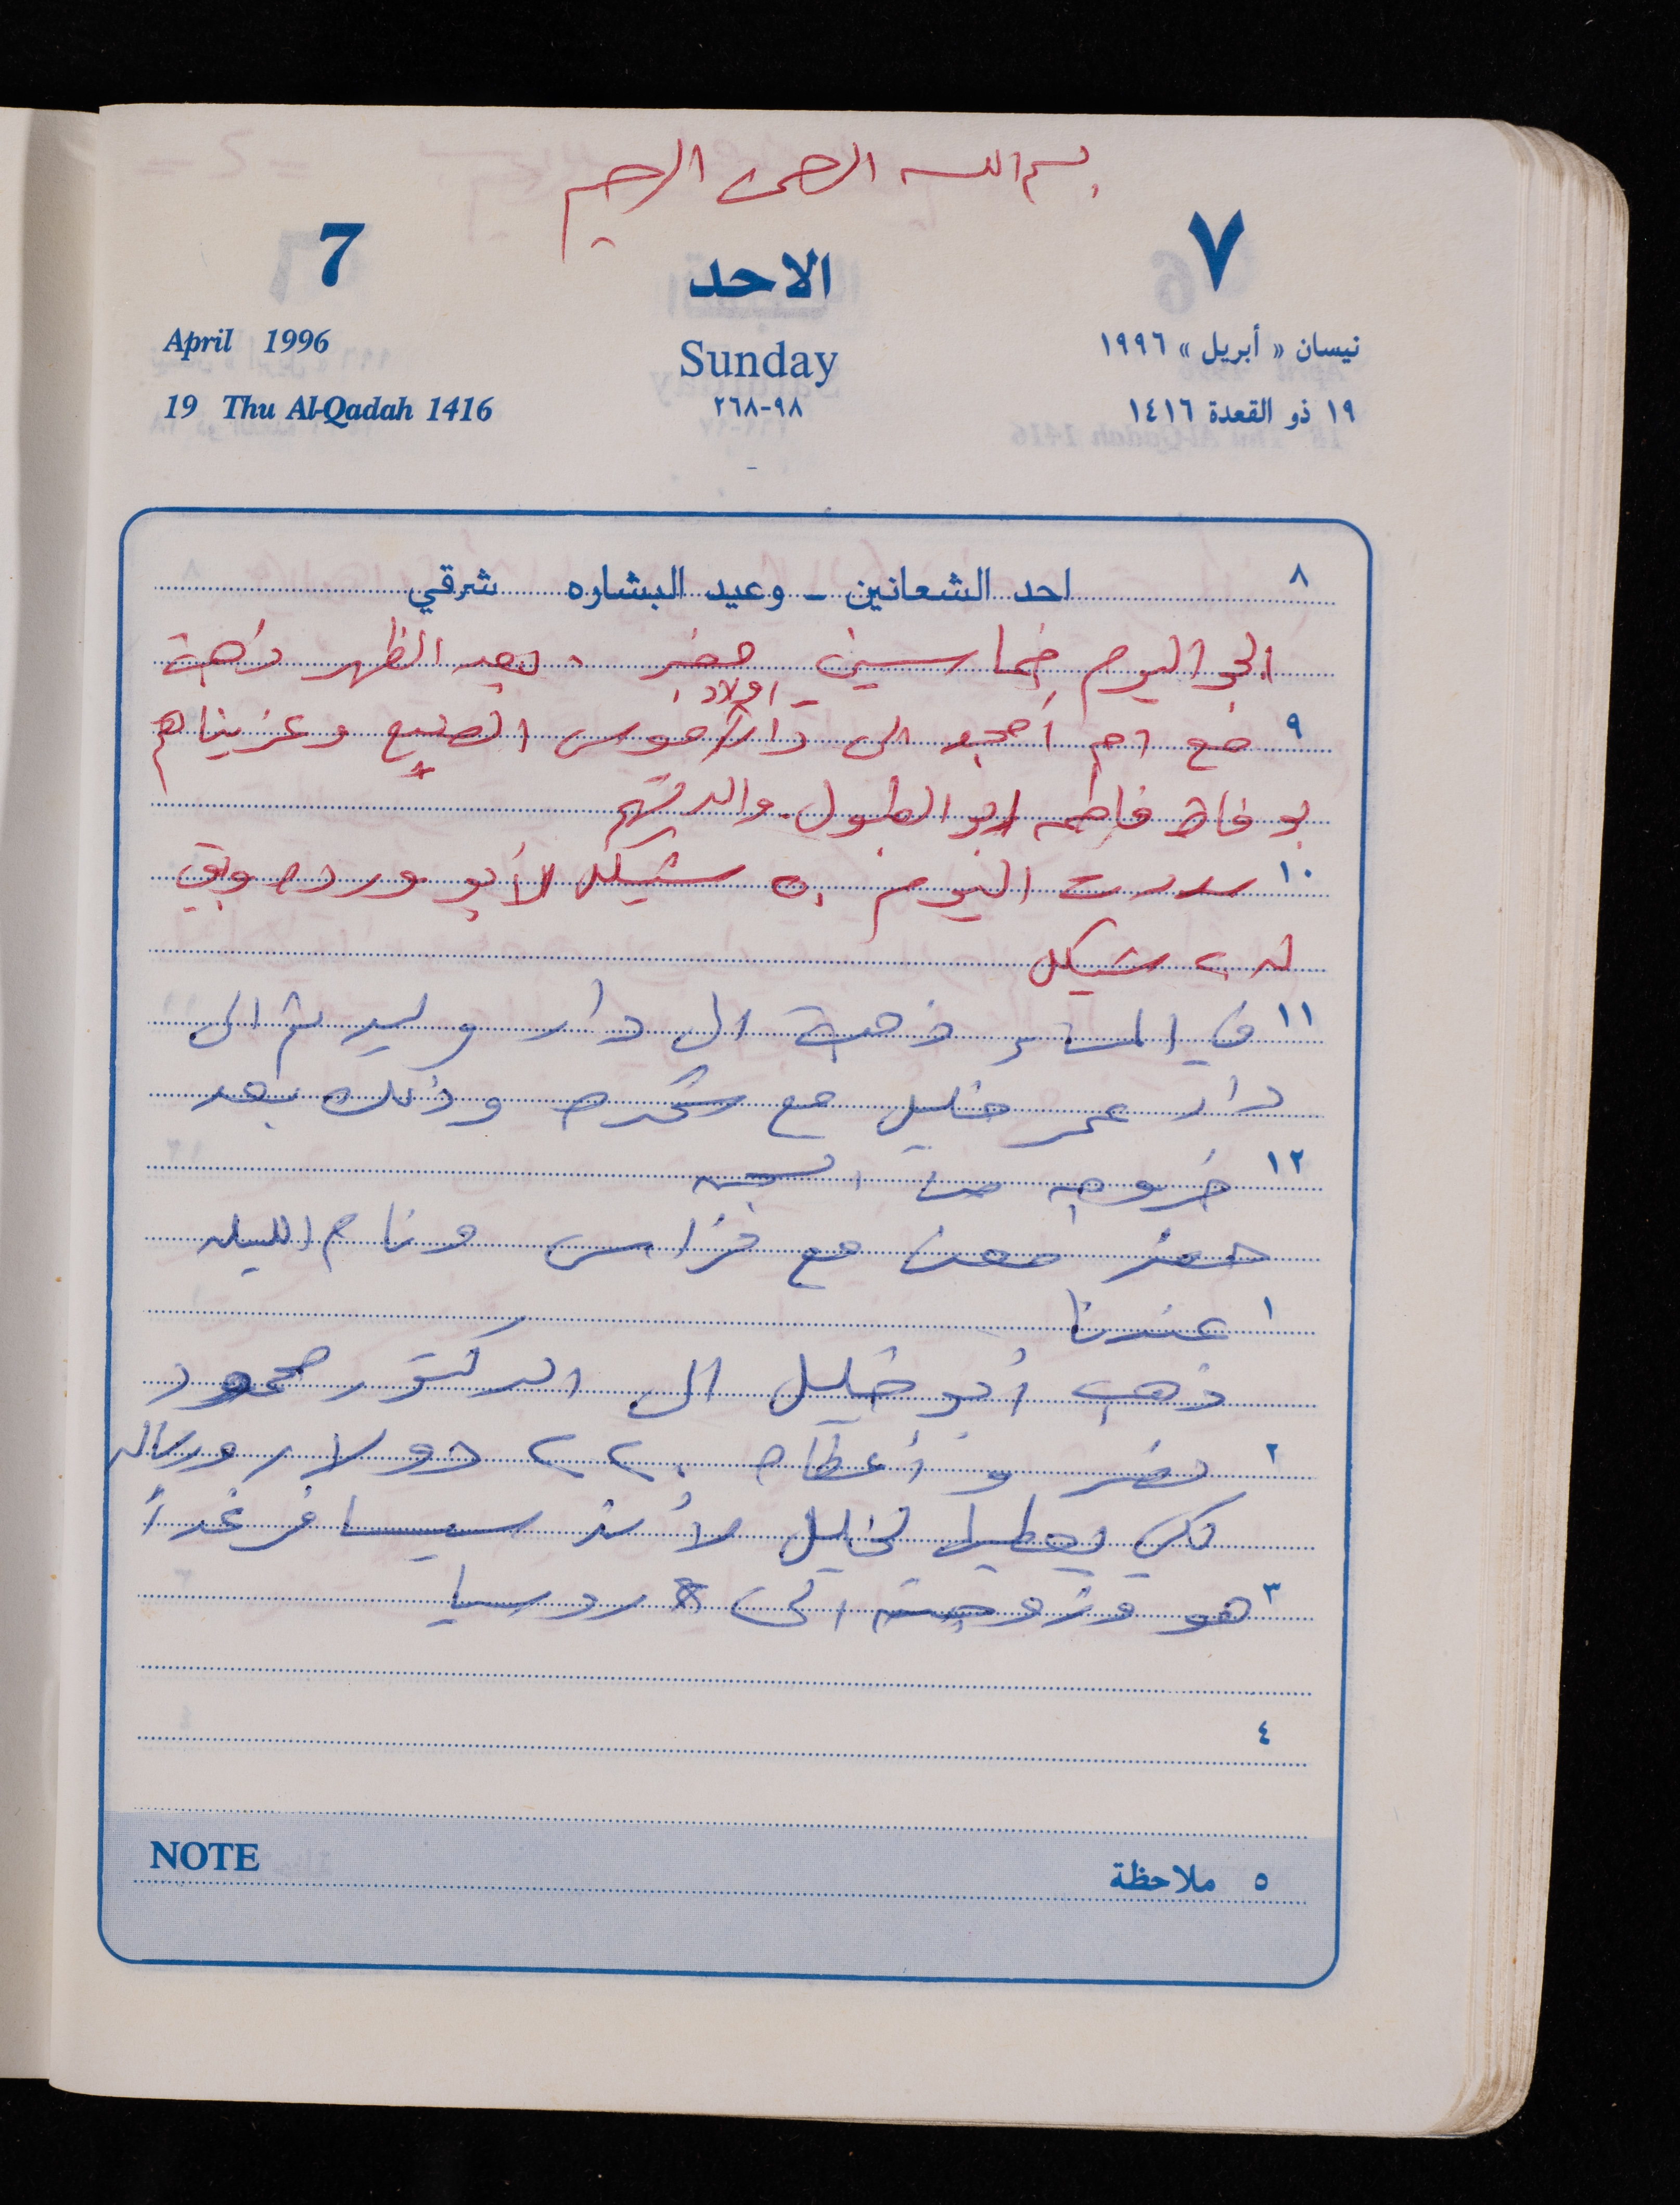 بسم الله الرحمن الرحيم
7 الاحد ٧
April 1996 Sunday نيسان « أبريل » ١٩٩٦
19 Thu Al-Qadah 1416 ٩٨-٢٦٨ ١٩ ذو القعدة ١٤١٦
٨ احد الشعانين - وعيد البشاره شرقي
الجو اليوم خماسين . بعد الظهر ذهبت
اولاد
٩ مع ام أمجد الى دار موسى وعزيناهم
بوفاة فاطمه ابو الطبول والدتهم
١٠ سددت اليوم ٥٠ شيكل لأبو ورده وبقي
له ٢٠ شيكل
١١ في المساء ذهبت الى دار وليد ثم الى
دار عمر خليل مع وذلك بعد
١٢ خروجه من
حضر معن مع فراس ونام الليله
١ عندنا
ذهب أبو خليل الى الدكتور محمود
٢ نضر و أعطاه ٢٢٠ دولار ورساله
لكي يعطيها لخليل لأنه سيسافر غداً
٣ هو وزوجته الى روسيا
٤
NOTE ٥ ملاحظة